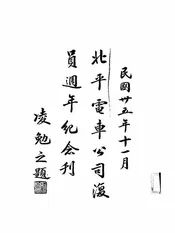 民國卅五年十一月
北平電車公司復
員週年紀念刊
凌勉之題